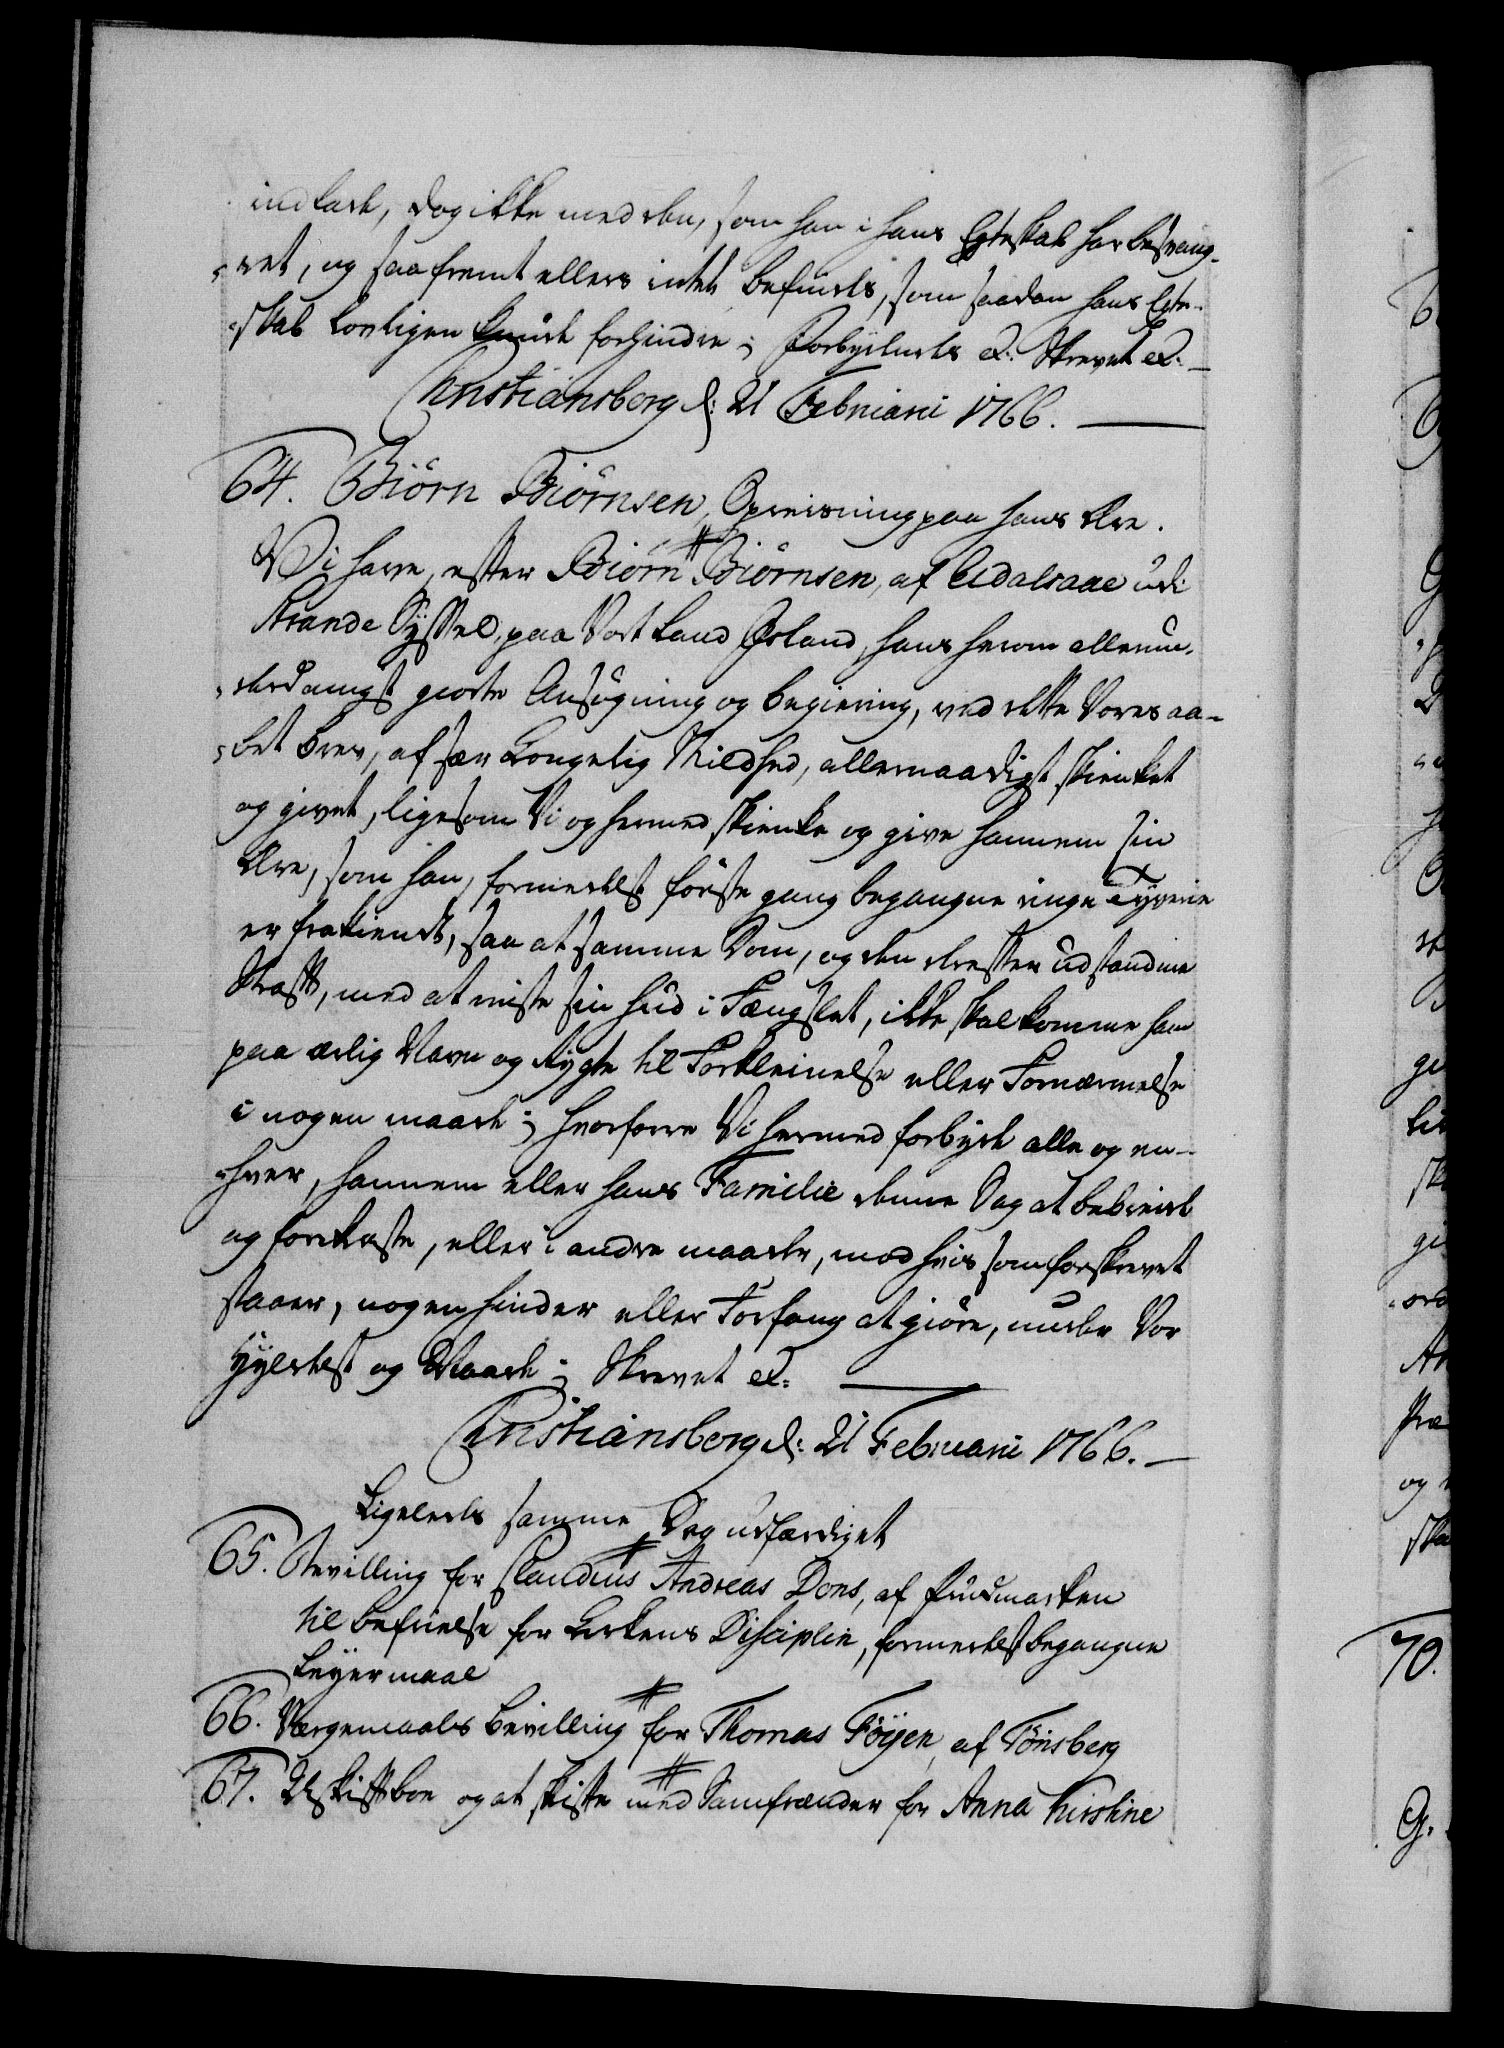 indlade, dog ikke med den, som han i hans Egteskab har besvang-
-ret, og saafremt ellers intet befindes, som saadan hans Egte-
-skab lovligen kunde forhindre; Forbydendes &c: Skrevet &c:
Christiansborg d: 21 Februarii 1766.
64. Biörn Biörnsen, Opreisning paa hans Ære.
Vi have, efter Biörn Biörnsen, af Adalsaae udi
Strande Syssel, paa Vort Land Iisland, hans herom allerun-
-derdanigst giorte Ansögning og begiering, ved dette Vores aa-
-bet brev, af sær Kongelig Mildhed, allernaadigst skienket
og givet, ligesom Vi og hermed skienke og give hannem sin
Ære, som han, formedelst förste gang begangne ringe Tyverie
er frakiendt, saa at samme Dom, og den derefter udstandne
Straff, med at miste sin hud i Fængslet, ikke skal komme ham
paa ærlig Navn og Rygte til Forkleinelse eller Fornærmelse
i nogen maade; hvorforre Vi hermed forbyde alle og en-
-hver, hannem eller hans Familie denne Sag at bebreide
og forekaste, eller i andre maader, mod hvis som forskrevet
staaer, nogen hinder eller Forfang at giöre, under Vor
Hyldest og Naade; Skrevet &c:
Christiansborg d: 21 Februarii 1766.
Ligeledes samme Dag udfærdiget
65. Bevilling for Claudius Andreas Dons, af Findmarken
til befrielse for Kirkens Disciplin, formedelst begangne
Leyermaal
66. Værgemaals bevilling for Thomas Föyen, af Tönsberg
67. Uskiftboe og at skifte med Samfrænder for Anna Kirstine